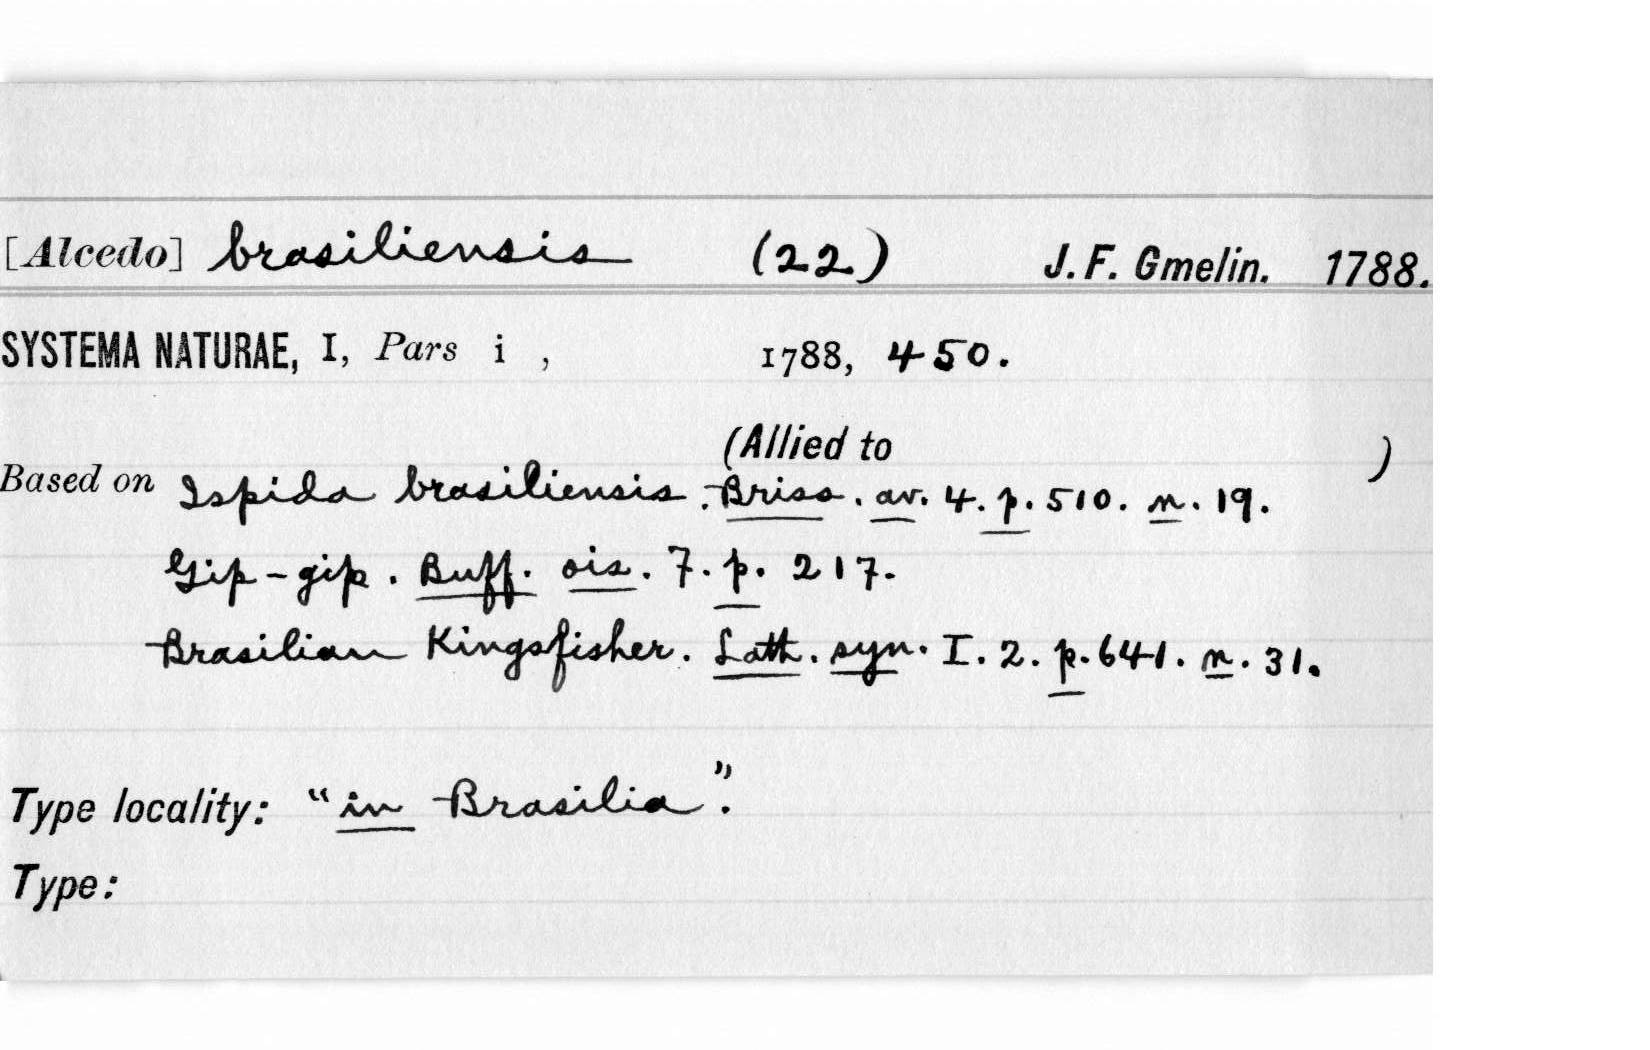 [Alcedo] brasiliensis (22) J. F. Gmelin. 1788.
SYSTEMA NATURAE, I, Pars i , 1788, 450.
(Allied to )
Based on Ispida brasiliensis. Briss. av. 4. p. 510. n. 19.
Gip-gip. Buff. ois. 7. p. 217.
Brasilian Kingsfisher. Lath. syn. I. 2. p. 641. n. 31.
Type locality: "in Brasilia".
Type: